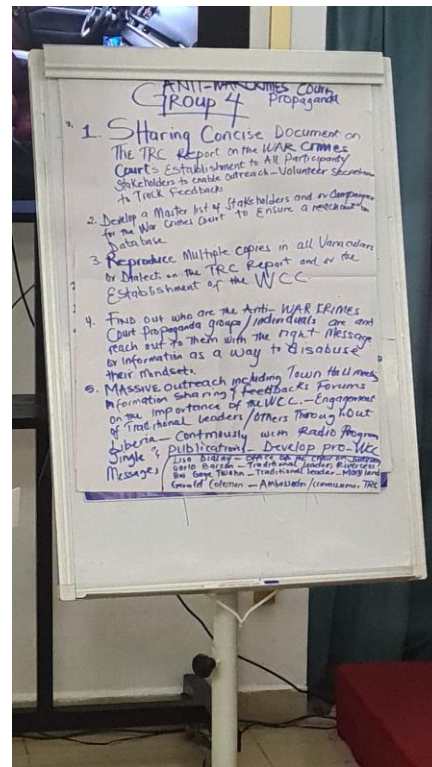 ANTI-WAR CRIMES COURT
Group 4 Propaganda
1. SHaring Concise Document on
The TRC Report on the WAR Crimes
Court's Establishment to All Participants/
Stakeholders to enable outreach - Volunteer
to Track Feedbacks
2. Develop a Master list of Stakeholders and or
for the War Crimes Court to Ensure a reachout
Database
3. Reproduce Multiple copies in all Vanaculars
or Dialect on the TRC Report and or the
Establishment of the WCC.
4. FIND out who are the Anti-WAR CRIMES
Court Propaganda groups/individuals are and
reach out to Them with the right Message
or Information as a way to disabuse
their Mindsets.
5. MASSIVE Outreach including Town Hall meets
Information Sharing & Feedbacks Forums
on the Importance of the WCC. - Engagement
of Traditional Leaders/Others Throughout
Liberia - Continously with Radio Program
Jingle & Publications - Develop pro-WCC
Messages
- Office of the Chair on
Barson - Traditional Leader, Rivercess
- Traditional Leader - Maryland
Gerald Coleman - Ambassador/Commissioner, TRC